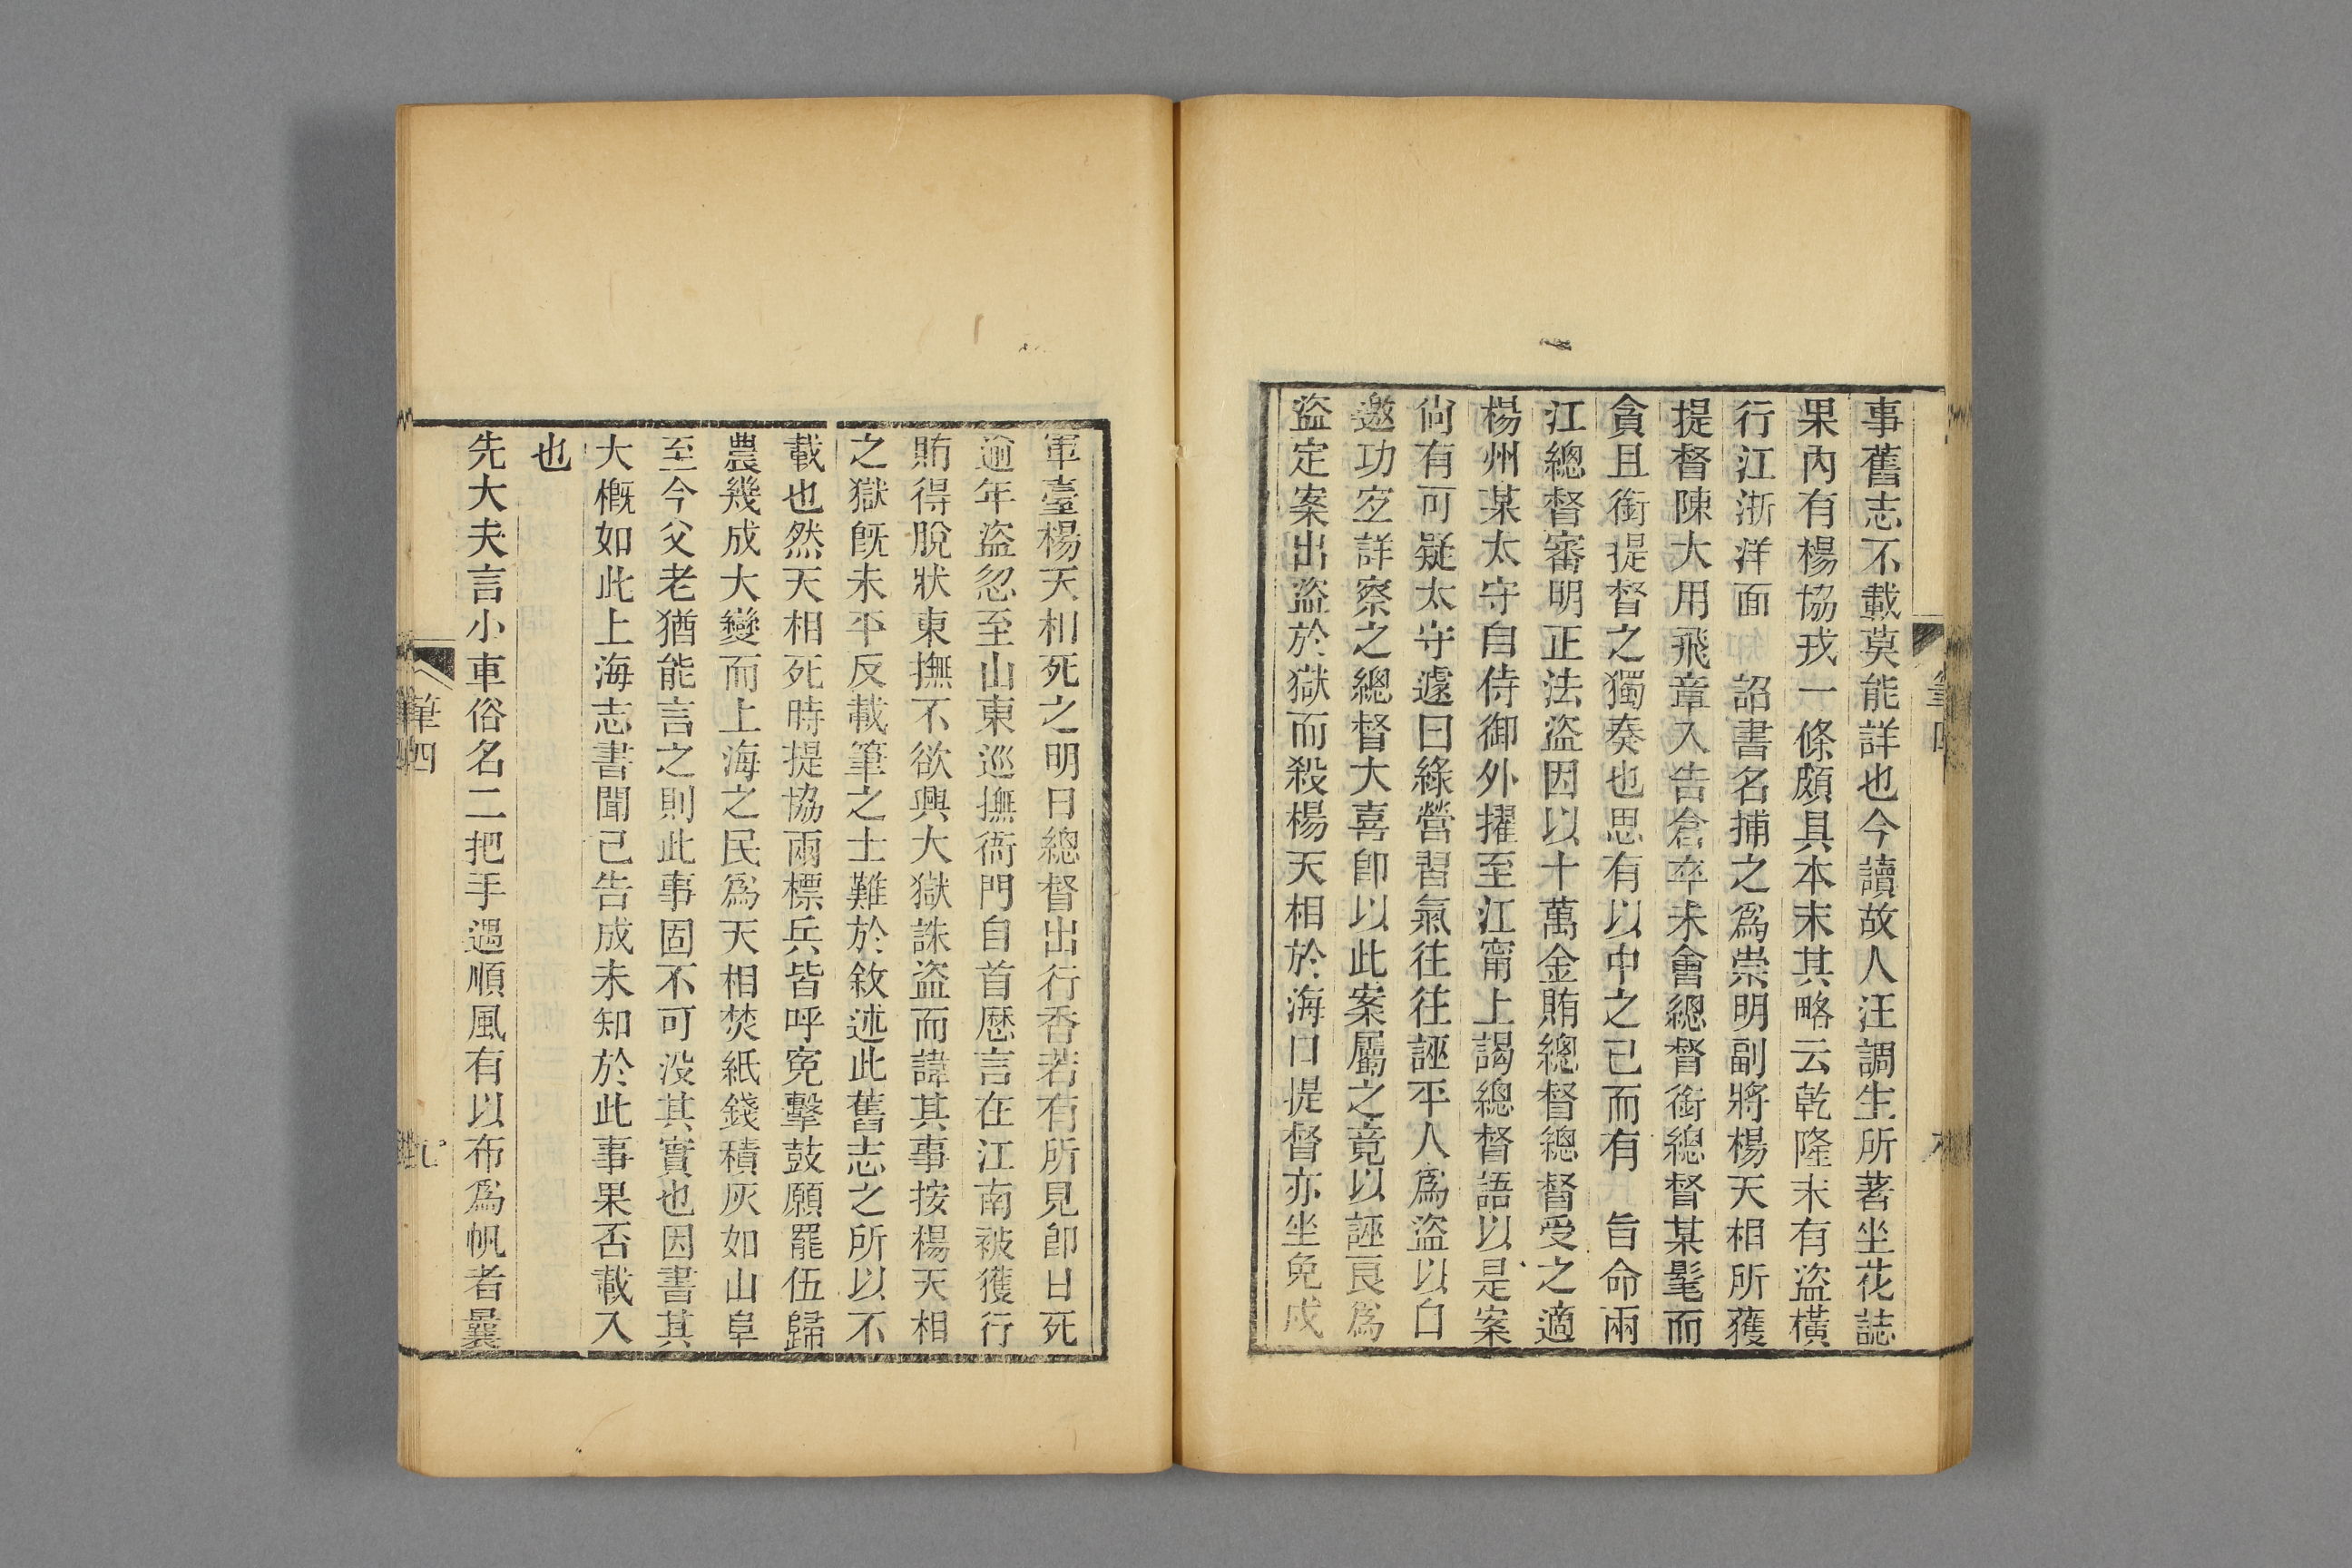 事舊志不載莫能詳也今讀故人汪調生所著坐花誌
果內有楊協戎一條頗具本末其略云乾隆末有盜橫
行江浙洋面　詔書名捕之爲崇明副將楊天相所獲
提督陳大用飛章入告倉卒未會總督銜總督某髦而
貪且銜提督之獨奏也思有以中之已而有　旨命兩
江總督審明正法盜因以十萬金賄總督總督受之適
楊州某太守自侍御外擢至江甯上謁總督語以是案
尙有可疑太守遽曰綠營習氣往往誣平人爲盜以白
邀功宜詳察之總督大喜卽以此案屬之竟以誣良爲
盜定案出盜於獄而殺楊天相於海口提督亦坐免戍
軍臺楊天相死之明日總督出行香若有所見卽日死
逾年盜忽至山東巡撫衙門自首歷言在江南被獲行
賄得脫狀東撫不欲興大獄誅盜而諱其事按楊天相
之獄旣未平反載筆之士難於敘述此舊志之所以不
載也然天相死時提協兩標兵皆呼寃擊鼓願罷伍歸
農幾成大變而上海之民爲天相焚紙錢積灰如山阜
至今父老猶能言之則此事固不可沒其實也因書其
大槪如此上海志書聞已告成未知於此事果否載入
也
先大夫言小車俗名二把手遇順風有以布爲帆者曩
筆四